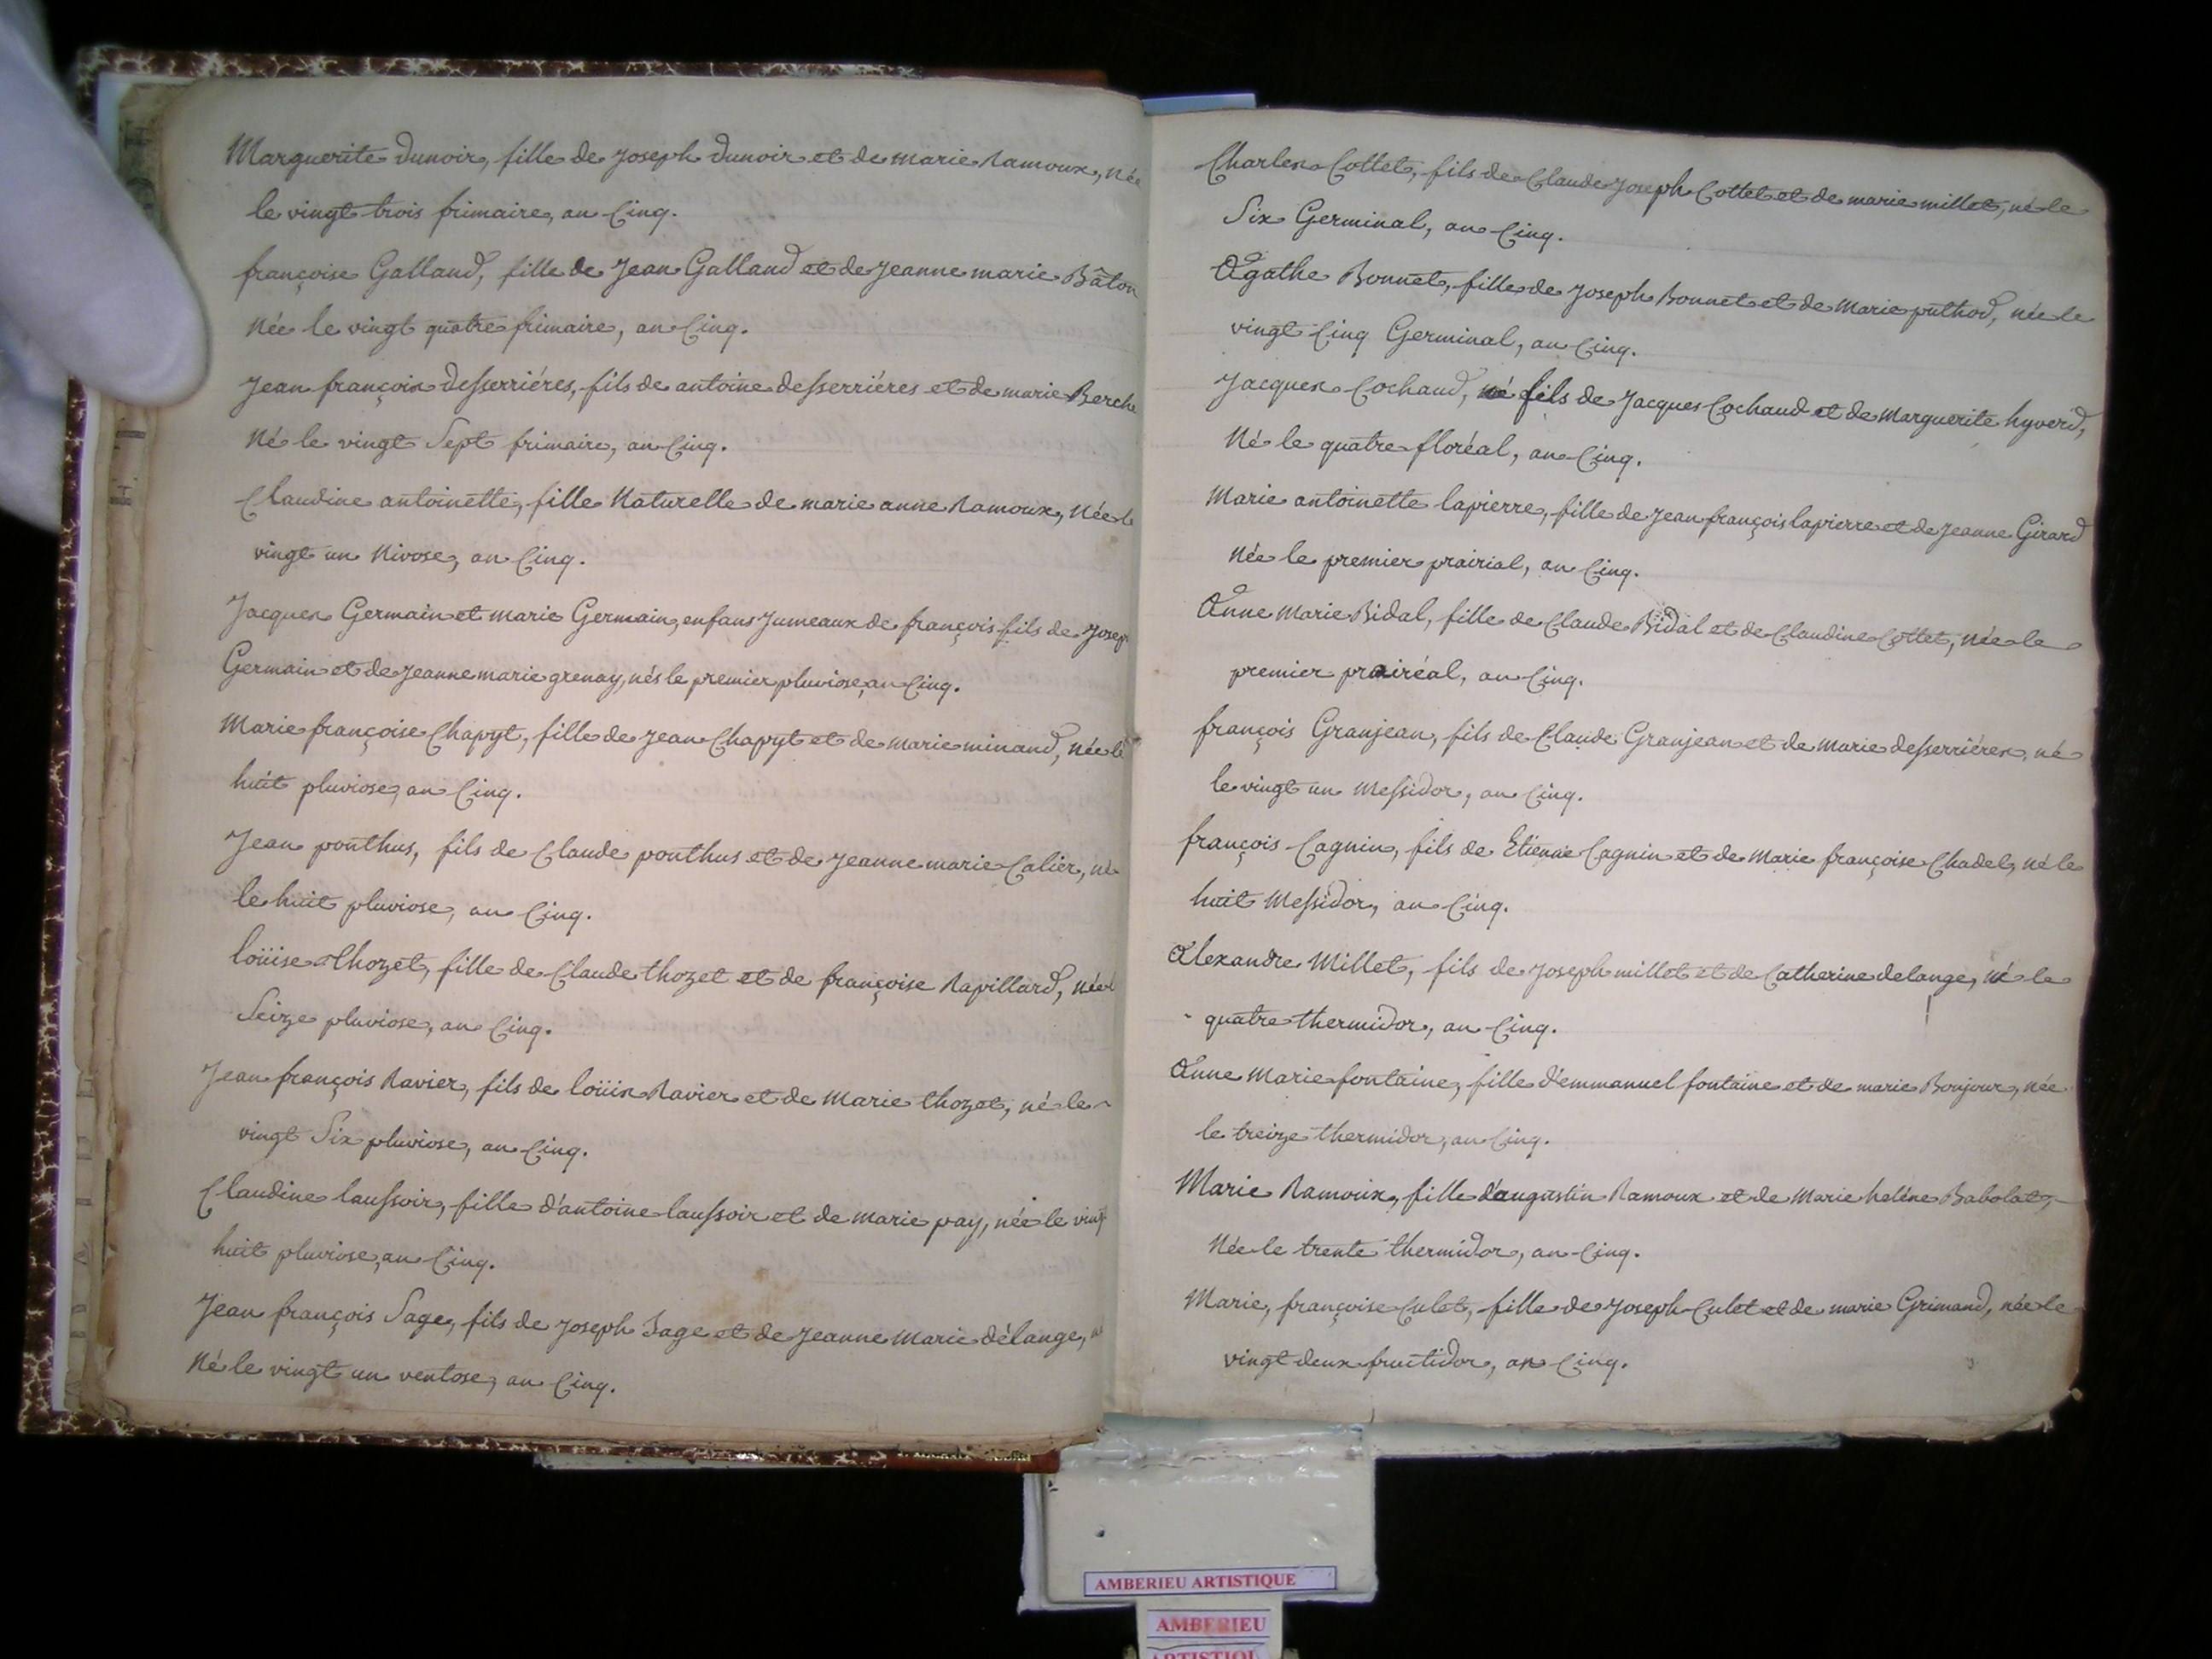 Marguerite dunoir, fille de Joseph dunoir et de marie Ramoux, née
le vingt trois frimaire, an Cinq.
françoise Galland, fille de Jean Galland et de Jeanne marie Bâton
Née le vingt quatre frimaire, an Cinq.
Jean françois desserriéres, fils de antoine desserriéres et de marie Berche
Né le vingt Sept frimaire, an Cinq.
Claudine antoinette, fille Naturelle de marie anne Ramoux, Née le
vingt un Nivose, an Cinq.
Jacques Germain et marie Germain, enfans Jumeaux de françois fils de Josep
Germain et de Jeanne marie grenay, nés le premier pluviose, an Cinq.
Marie françoise Chapyt, fille de Jean Chapyt et de marie minand, née le
huit pluviose, an Cinq.
Jean ponthus, fils de Claude ponthus et de Jeanne marie Calier, né
le huit pluviose, an Cinq.
loüise thozet, fille de Claude thozet et de françoise Rapillard, née l
Seize pluviose, an Cinq.
Jean françois Ravier, fils de loüis Ravier et de Marie thozet, né le
vingt Six pluviose, an Cinq.
Claudine laussoir, fille d'antoine laussoir et de marie pay, née le vingt
huit pluviose, an Cinq.
Jean françois Sage, fils de Joseph Sage et de Jeanne Marie délange,
Né le vingt un ventose, an Cinq.
Charles Cottet, fils de Claude Joseph Cottet et de marie millet, né le
Six Germinal, an Cinq.
Agathe Bonnet, fille de Joseph Bonnet et de Marie puthod, née le
vingt Cinq Germinal, an Cinq.
Jacques Cochaud, né fils de Jacques Cochaud et de Marguerite hyverd,
Né le quatre floréal, an Cinq.
Marie antoinette lapierre, fille de Jean françois lapierre et de Jeanne Girard
Née le premier prairial, an Cinq.
Anne Marie Bidal, fille de Claude Bidal et de Claudine Cottet, née le
premier prairéal, an Cinq.
françois Granjean, fils de Claude Granjean et de Marie desserriéres, né
le vingt un Messidor, an Cinq.
françois Cagnin, fils de Etienne Cagnin et de Marie françoise Chadel, né le
huit Messidor, an Cinq.
Alexandre Millet, fils de Joseph millet et de Catherine delange, né le
quatre thermidor, an Cinq.
Anne Marie fontaine, fille d'emmanuel fontaine et de marie Bonjour, née
le treize thermidor, an Cinq.
Marie Ramoux, fille d'augustin Ramoux et de Marie heléne Babolat,
Née le trente thermidor, an Cinq.
Marie, françoise Culet, fille de Joseph Culet et de marie Grimand, née le
vingt deux fructidor, an Cinq.
AMBERIEU ARTISTIQUE
AMBERIEU